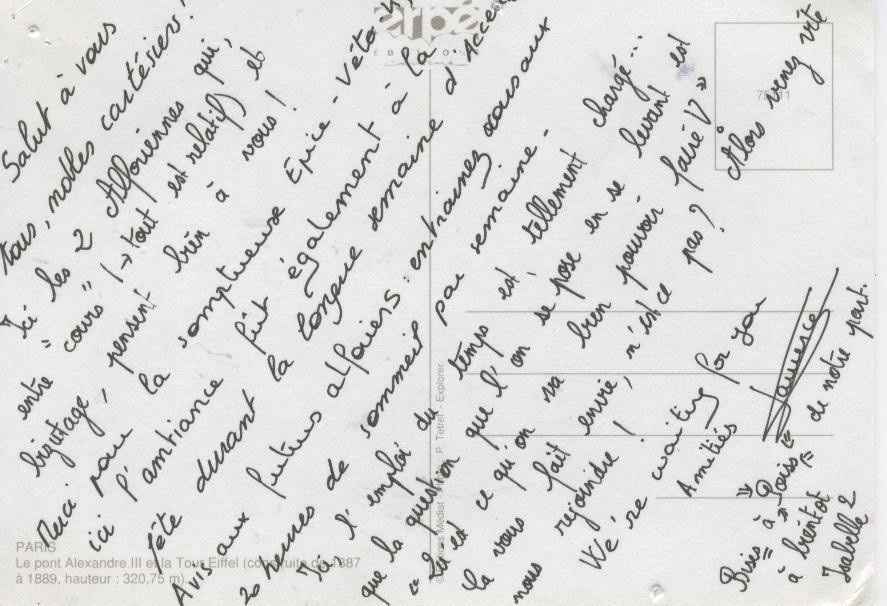 Salut à vous
tous, nobles cartésiens !
Ici les 2 Alforiennes qui,
entre "cours" (→ tout est relatif) et
bizutage, pensent bien à vous !
Merci pour la somptueuse Epice-Véto
ici l'ambiance fût également à la
fête durant la longue semaine d'Accueil
Avis aux futurs alforiens : entrainez vous aux
20 heures de sommeil par semaine -
Ici l'emploi du temps est tellement chargé...
que la question que l'on se pose en se levant est
"Qu'est ce qu'on va bien pouvoir faire ?"
Ca vous fait envie, n'est ce pas ? Alors venez vite
nous rejoindre !
We're waiting for you
Amitiés
Laurence
Bises à "Poiss" de notre part.
à bientôt
Isabelle 2
erpé
EDITION
75011
P. Tetrel - Explorer
PARIS
Le pont Alexandre III et la Tour Eiffel (construite de 1887
à 1889, hauteur : 320,75 m).